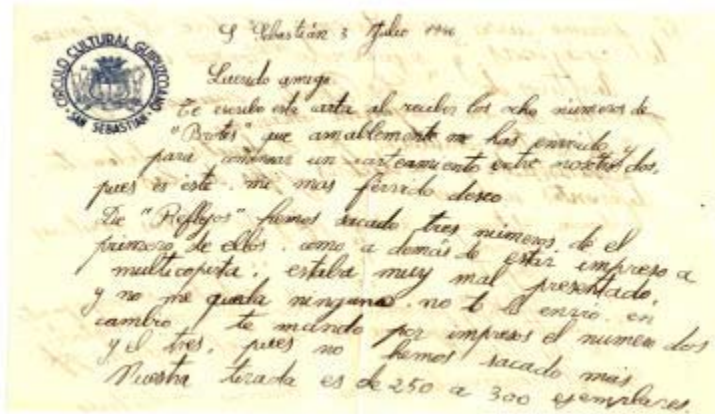 CIRCULO CULTURAL GUIPUZCOANO
SAN SEBASTIAN
S. Sebastián 3 Julio 1946
Querido amigo
Te escribo esta carta al recibir los ocho números de
"Brotes" que amablemente me has enviado y
para comenzar un carteamiento entre nosotros dos,
pues es este mi mas férvido deseo
De "Reflejos" hemos sacado tres números, de el
primero de ellos. como a demás de estar impreso a
multicopista. estaba muy mal presentado,
y no me queda ninguno. no te lo envio. en
cambio te mando por impresos el numero dos
y el tres, pues no hemos sacado más
Nuestra tirada es de 250 a 300 ejemplares.